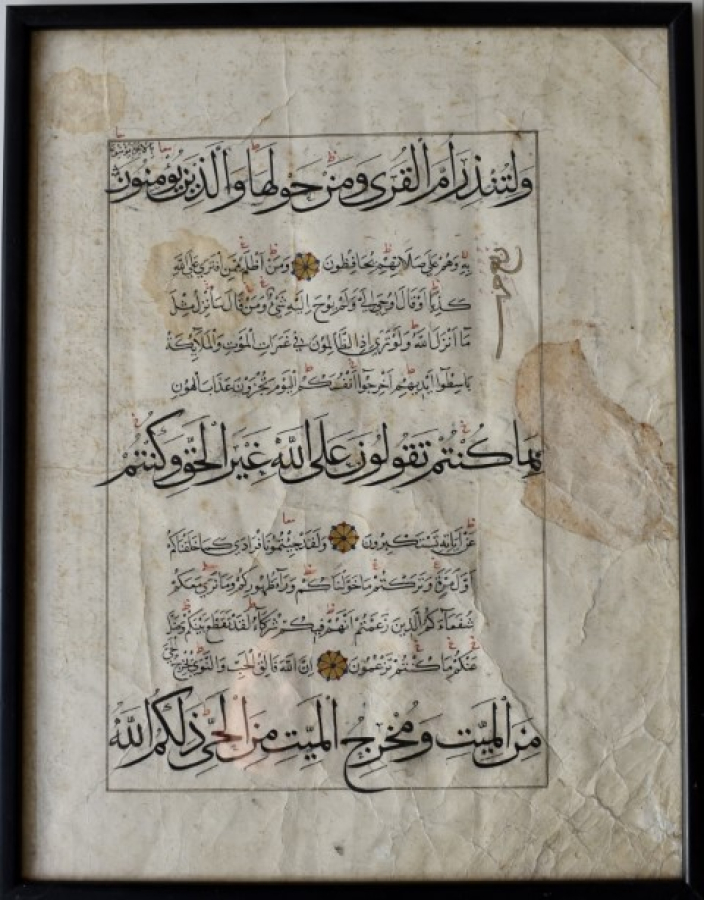 ولتنذر أم القرى ومن حولها والذين يؤمنون
به وهم على صلاتهم يحافظون ومن أظلم ممن افترى على الله
كذبا أو قال أوحي إلي ولم يوح إليه شيء ومن قال سأنزل مثل
ما أنزل الله ولو ترى إذ الظالمون في غمرات الموت والملائكة
باسطوا أيديهم أخرجوا أنفسكم اليوم تجزون عذاب الهون
بما كنتم تقولون على الله غير الحق وكنتم
عن آياته تستكبرون ولقد جئتمونا فرادى كما خلقناكم
أول مرة وتركتم ما خولناكم وراء ظهوركم وما نرى معكم
شفعاءكم الذين زعمتم أنهم فيكم شركاء لقد تقطع بينكم وضل
عنكم ما كنتم تزعمون إن الله فالق الحب والنوى يخرج الحي
من الميت ومخرج الميت من الحي ذلكم الله